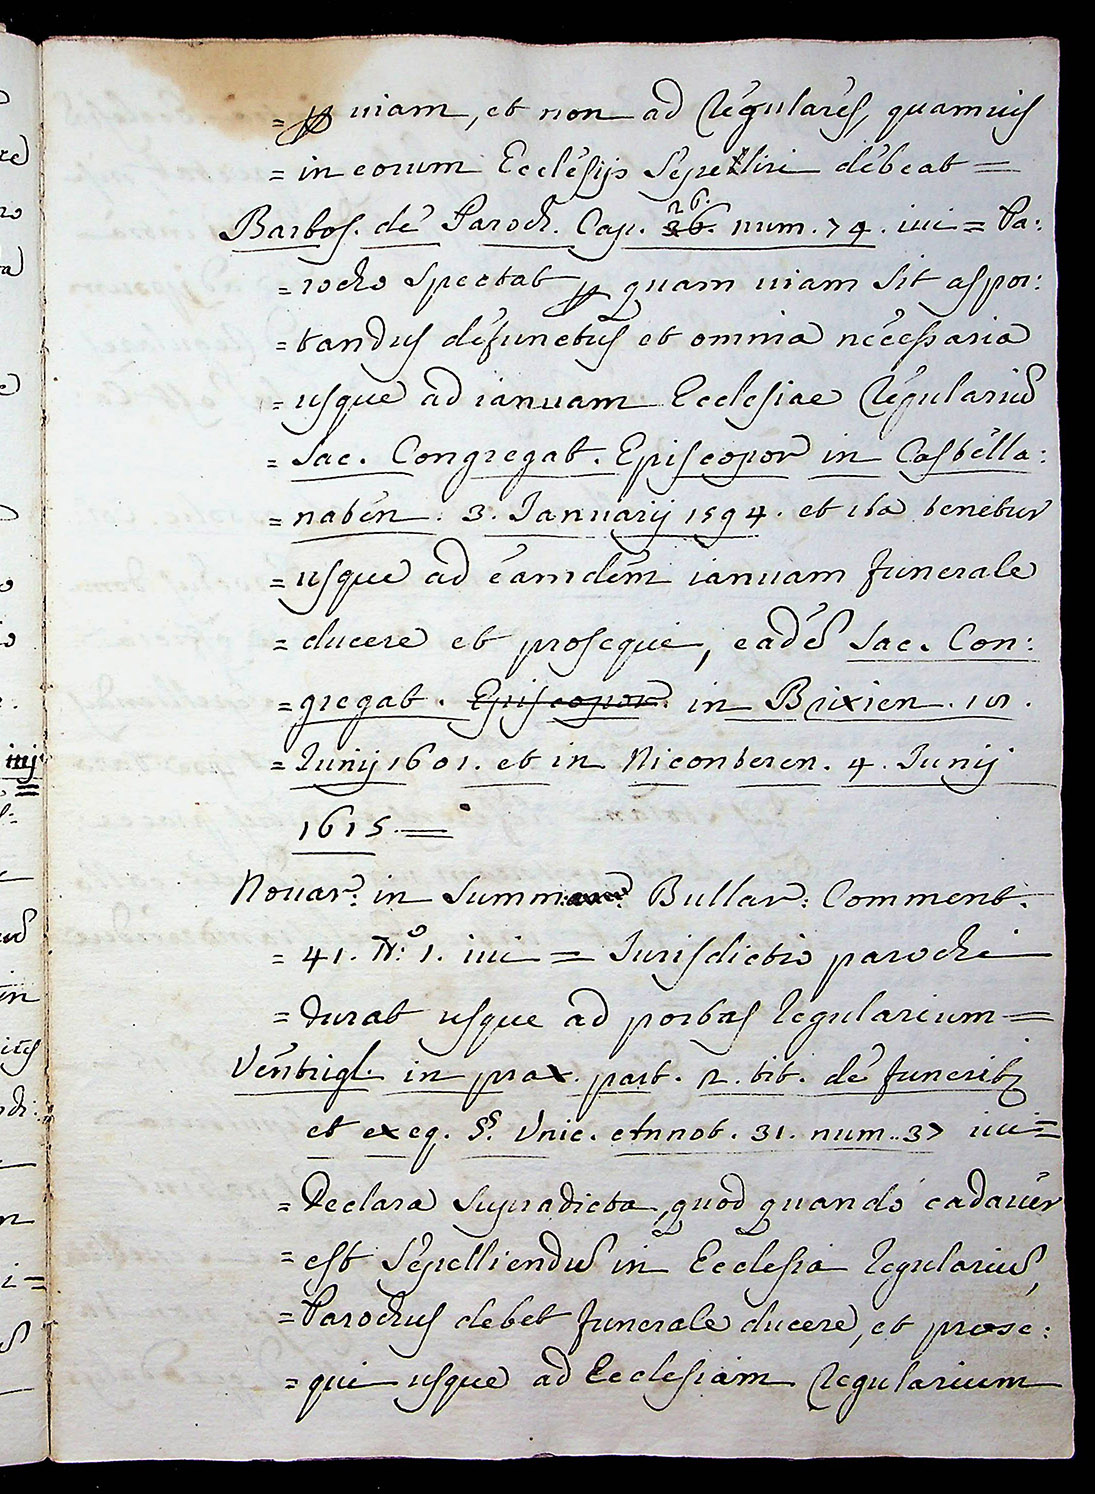 = ꝑ uiam, et non ad Regulares, quamuis
= in eorum Ecclesijs Sepelliri debeat =
Barbos. de Paroch. Cap. 26. num. 74. iui = Pa:
= rocho spectat ꝑ quam uiam sit aspor:
= tandus defunctus et omnia necessaria
= usque ad ianuam Ecclesiae Regulariũ
= Sac. Congregat. Episcopor in Castella:
= naten. 3. Januarij 1594. et ita tenetur
= usque ad eamdem ianuam funerale
= ducere et proseque, eadẽ Sac. Con:
= gregat. Episcopor. in Brixien. 15.
= Junij 1601. et in Niconteren. 4. Junij
1615. =
Nouar: in Summ. Bullar: Comment.
= 41. N:º 1. iui = Jurisdictio parochi
= durat usque ad portas regularium =
Ventrigl. in prax. part. 2. tit. de funerib
et exeq. §§. Unic. Annot. 31. num. 37 iui =
= Declara supradicta, quod quando cadauer
= est Sepelliendũ in Ecclesia regulariũ,
= Parochus debet funerale ducere, et prose:
= qui usque ad Ecclesiam Regularium